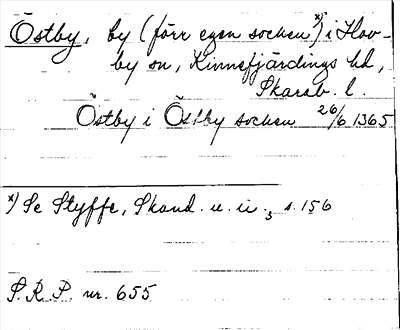 Östby, by (förr egen socken x)) i Hov-
by sn, Kinnefjärdings hd,
Skarab. l.
Östby i Östby socken 26/6 1365
x) Se Styffe, Skand. u. u.3 s. 156
S.R.P. nr. 655